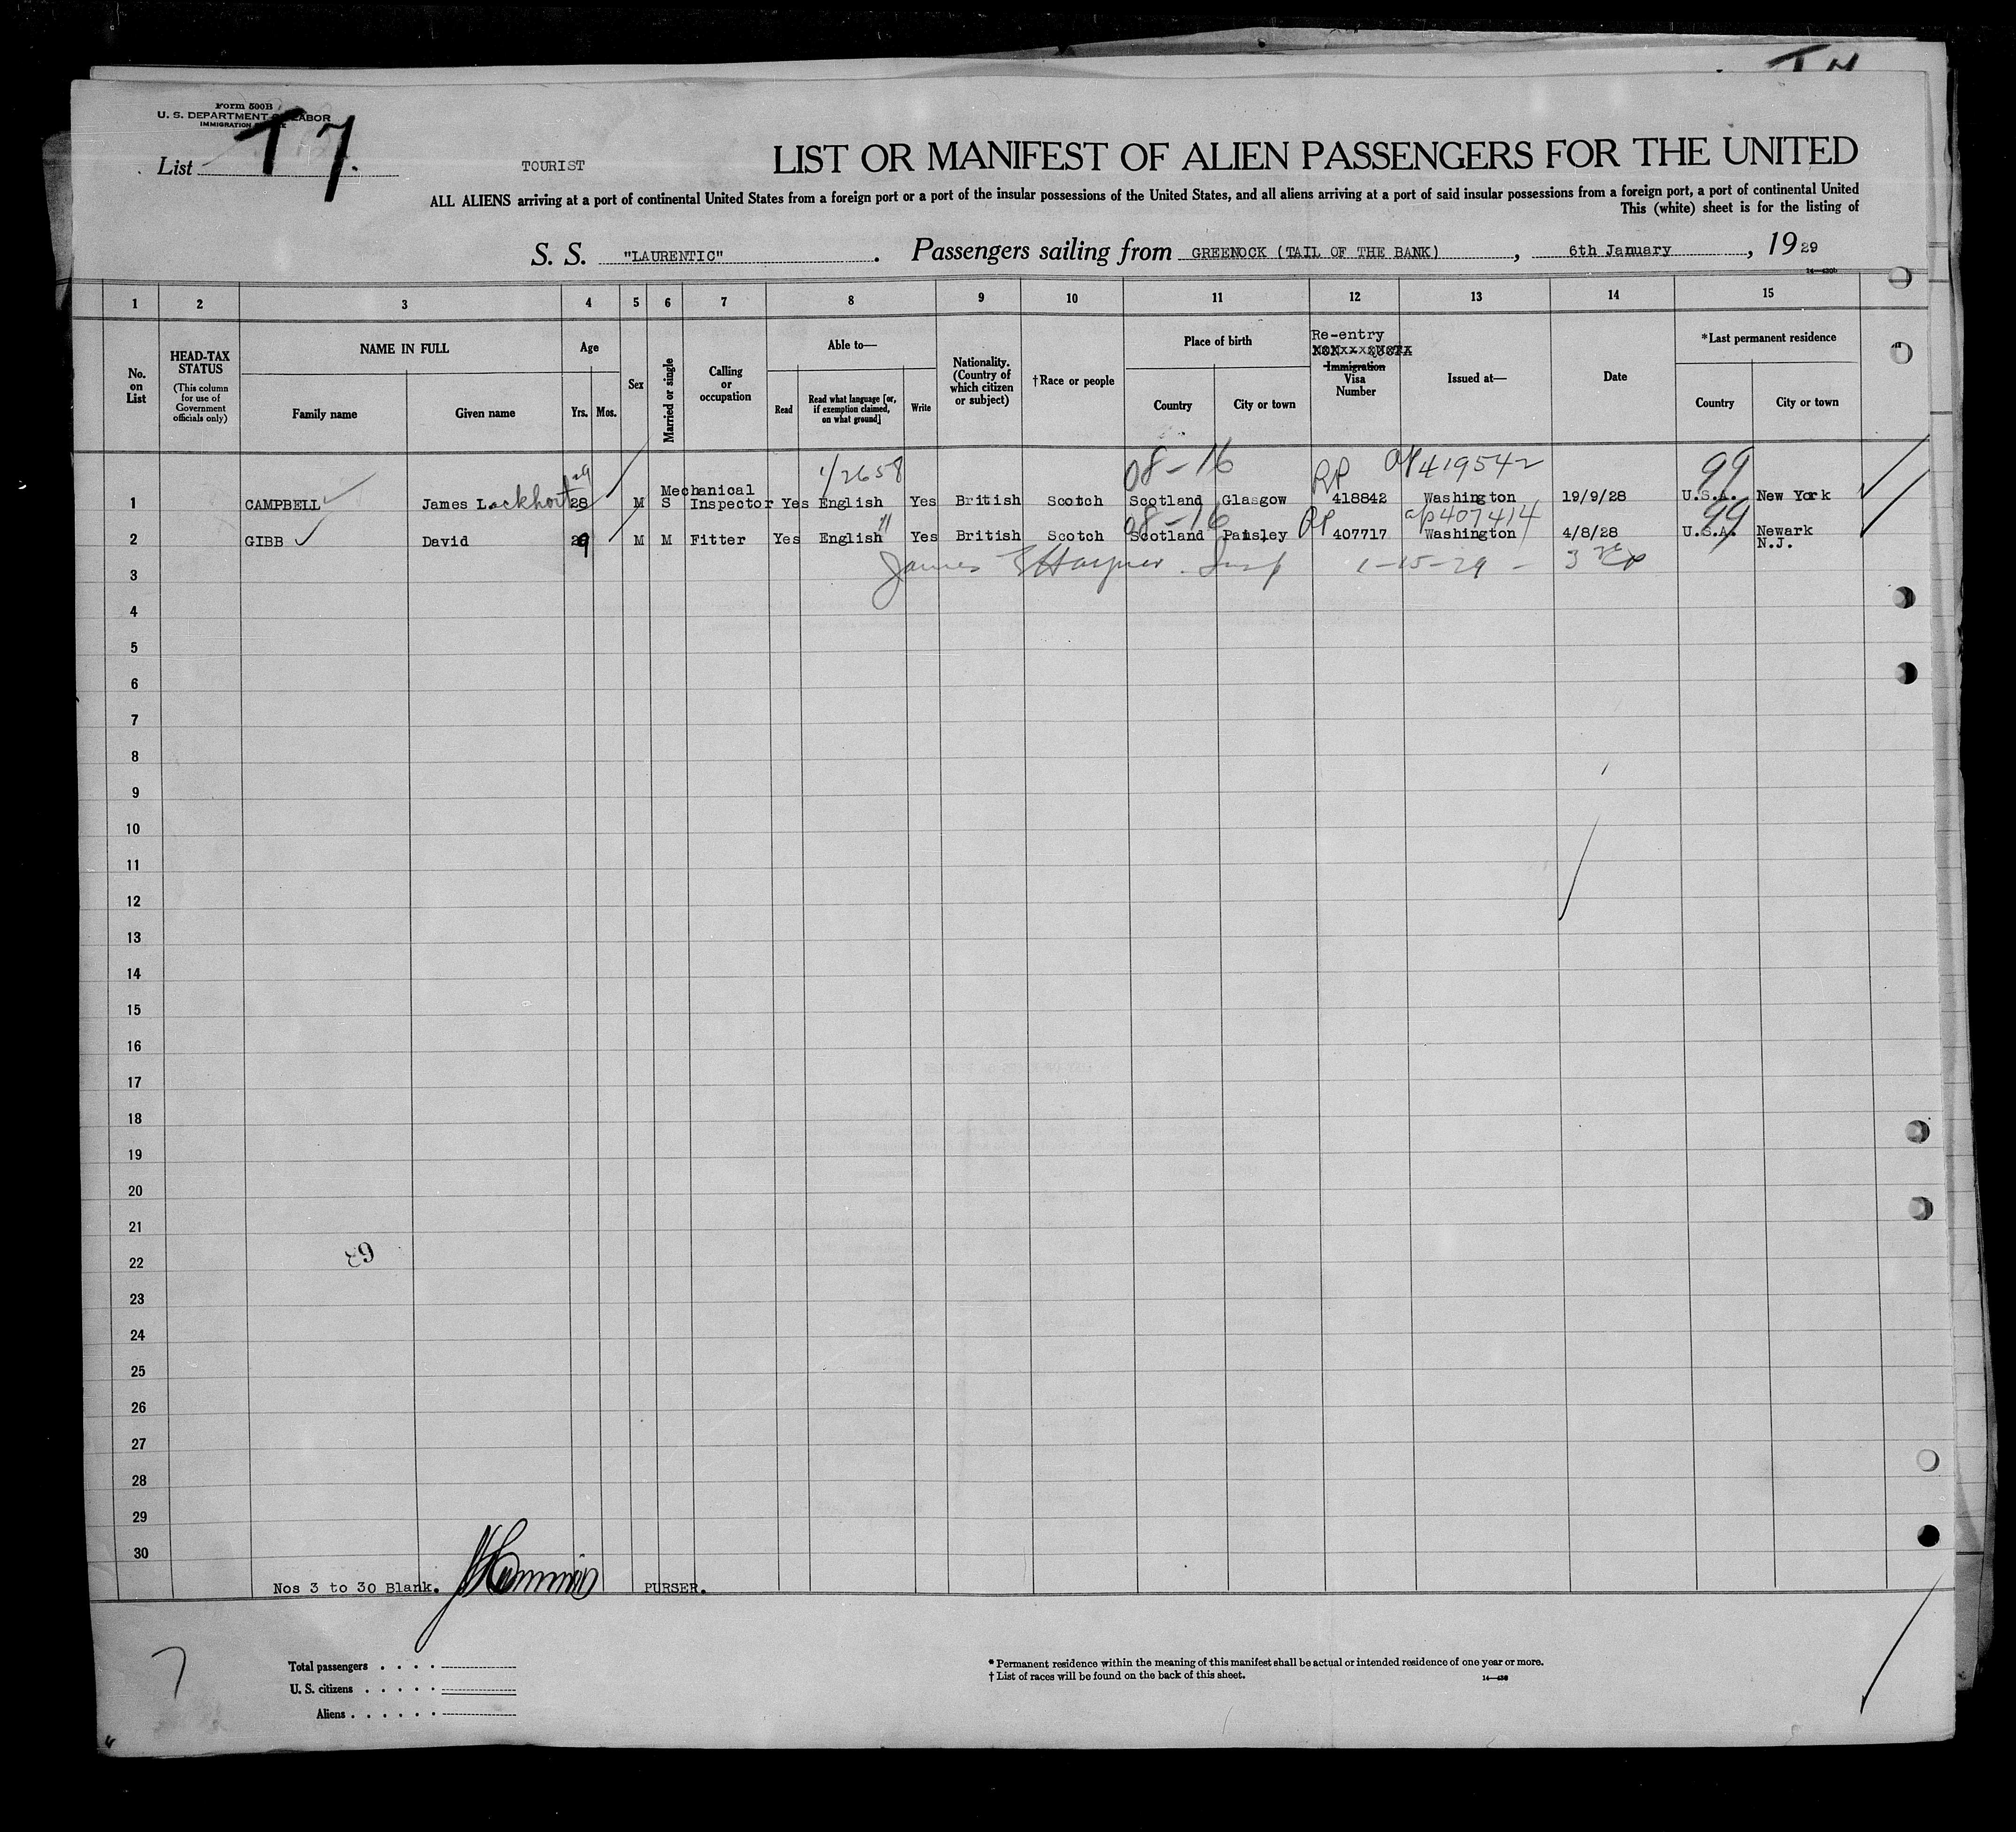 Form 500B
U. S. DEPARTMENT OF LABOR
IMMIGRATION
List T 7.
TOURIST
LIST OR MANIFEST OF ALIEN PASSENGERS FOR THE UNITED
ALL ALIENS arriving at a port of continental United States from a foreign port or a port of the insular possessions of the United States, and all aliens arriving at a port of said insular possessions from a foreign port, a port of continental United
This (white) sheet is for the listing of
S. S. "LAURENTIC". Passengers sailing from GREENOCK (TAIL OF THE BANK), 6th January, 1929
1 2 3 4 5 6 7 8 9 10 11 12 13 14 15
No. on List
HEAD-TAX STATUS (This column for use of Government officials only)
NAME IN FULL
Family name
Given name
Age
Yrs. Mos.
Sex
Married or single
Calling or occupation
Able to—
Read
Read what language [or, if exemption claimed, on what ground]
Write
Nationality. (Country of which citizen or subject)
†Race or people
Place of birth
Country
City or town
Re-entry
Immigration Visa Number
Issued at—
Date
*Last permanent residence
Country
City or town
29 1/2658 08-16 RP 419542 99
1 CAMPBELL James Lockhart 28 M S Mechanical Inspector Yes English Yes British Scotch Scotland Glasgow 418842 Washington 19/9/28 U.S.A. New York
" 08-16 RP 407414 99
2 GIBB David 29 M M Fitter Yes English Yes British Scotch Scotland Paisley 407717 Washington 4/8/28 U.S.A. Newark N.J.
3 James 1-15-29 - 3
4
5
6
7
8
9
10
11
12
13
14
15
16
17
18
19
20
21
22
23
24
25
26
27
28
29
30
Nos 3 to 30 Blank. PURSER.
7
Total passengers
U. S. citizens
Aliens
* Permanent residence within the meaning of this manifest shall be actual or intended residence of one year or more.
† List of races will be found on the back of this sheet.